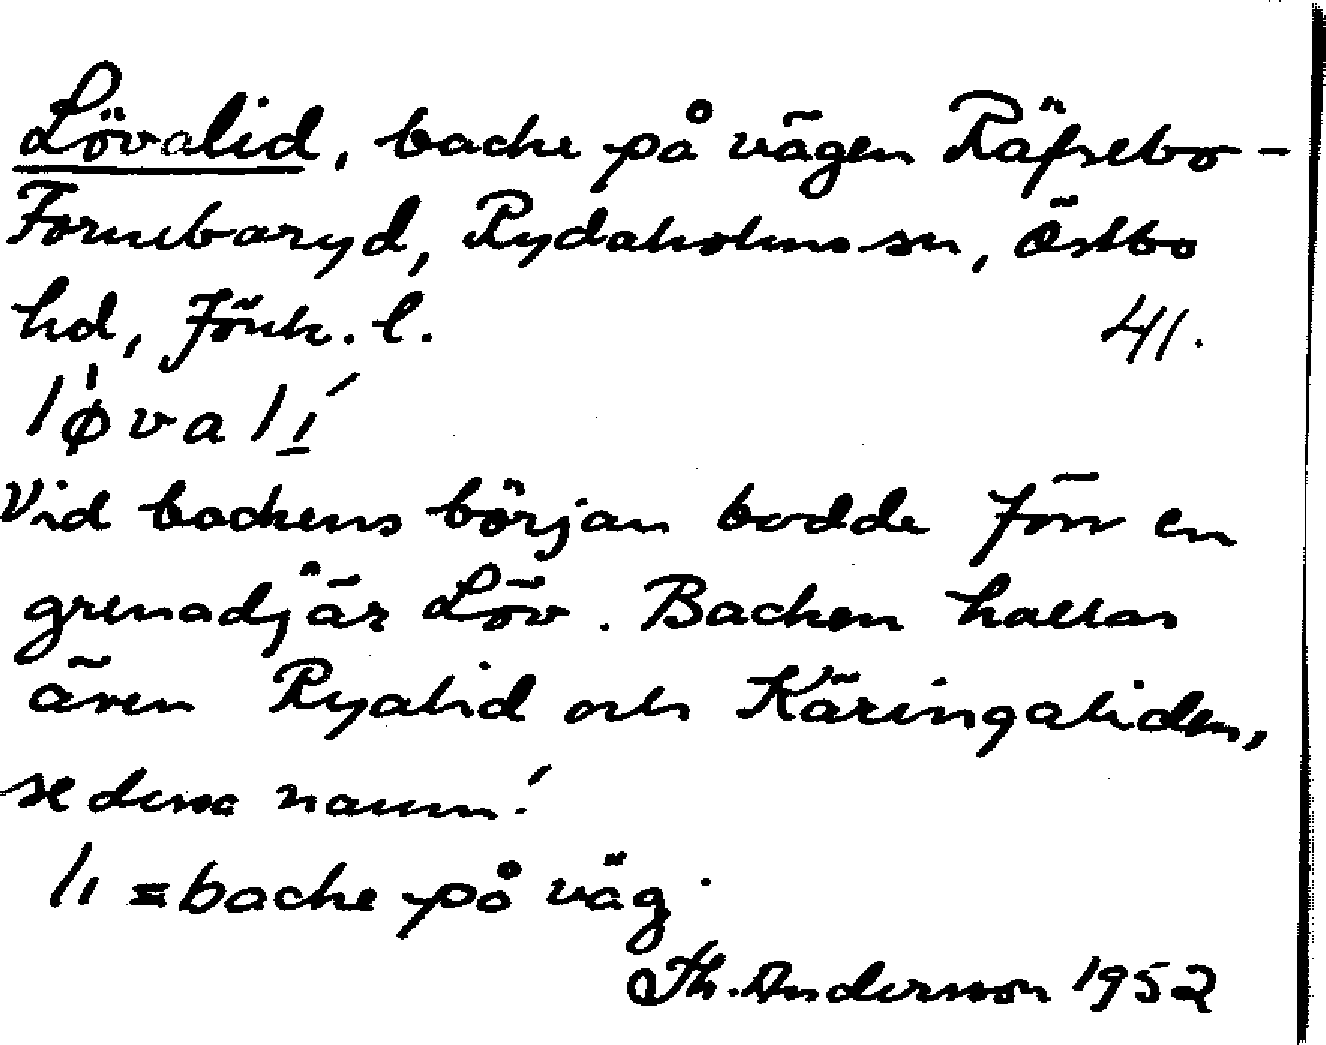 Lövalid, backe på vägen Räfsebo-
Fornebaryd, Rydaholms sn, Östbo
hd, Jönk. l. 41.
løvalí
Vid backens början bodde förr en
grenadjär Löv. Backen kallas
även Ryalid och Käringaliden,
se dessa namn!
li = backe på väg.
Th. Andersson 1952